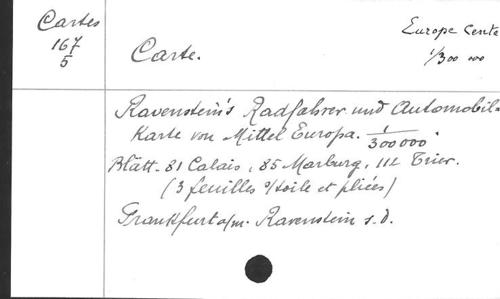 Cartes
167
5
Europe Cente
1/300 000
Carte.
Ravenstein's Radfahrer und Automobil-
Karte von Mittel Europa. 1/300 000.
Blätt. 81 Calais, 85 Marburg, 112 Trier.
(3 feuilles s/toile et pliées)
Frankfurt a/m. Ravenstein s.d.